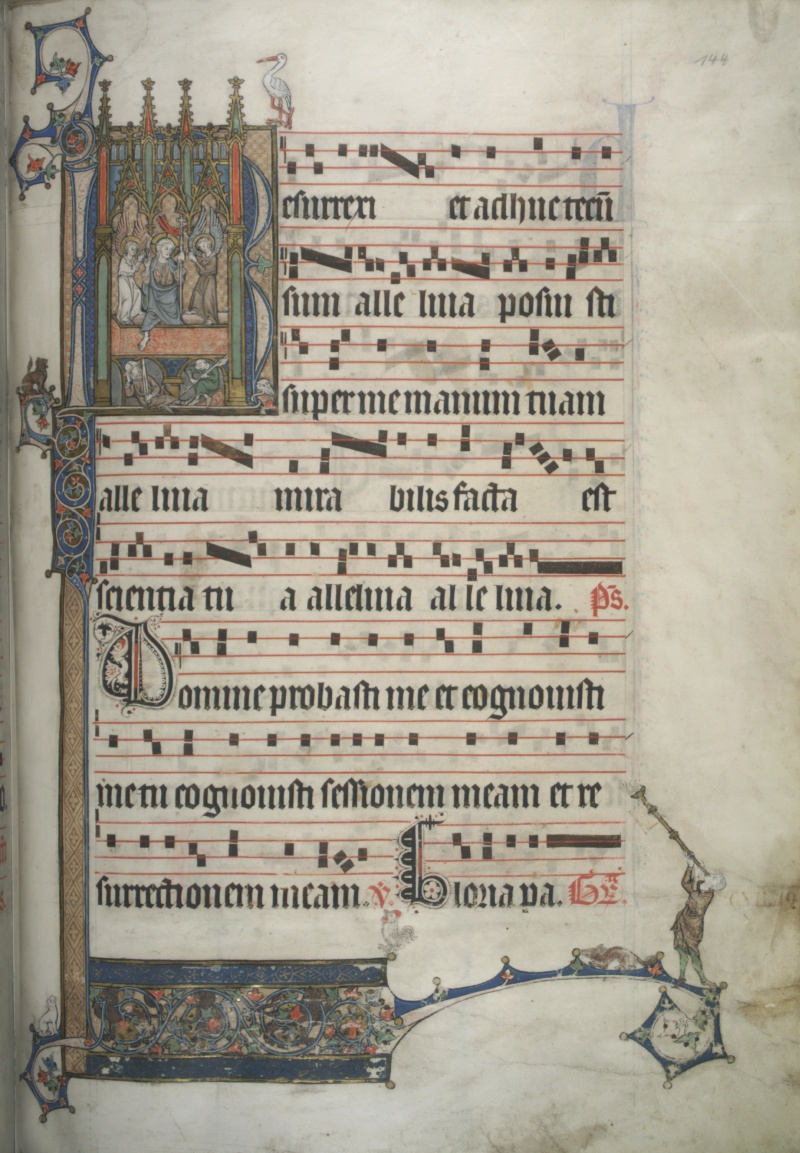 144
Resurrexi et adhuc tecū
sum alle luia posui sti
super me manum tuam
alle luia mira bilis facta est
scientia tu a alleluia al le luia. p̄s.
Domine probasti me et cognouisti
me tu cognouisti sessionem meam et re
surrectionem meam. v. Gloria pa. Gr̄.